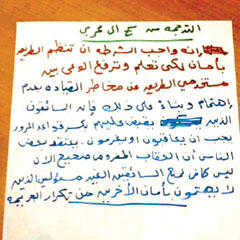 الترجمة من ال عربي
إنه واجب الشرطه أن تنظم الطريق
بأمان لكي تعلم وترفع الوعي بين
مستخدمي الطريق عن مخاطر القياده بعدم
إهتمام وبناءً على ذلك فإنه السائقون
الذين يقبض عليهم بكسر قواعد المرور
يجب ان يعاقبون او يغرمون. يعتقد بعض
الناس أن العقاب المفروض صحيح الان
ليس كافى لمنع السائقين الغير مسؤلين الذين
لا يهتمون بأمان الأخرين من تكرار الجريمه